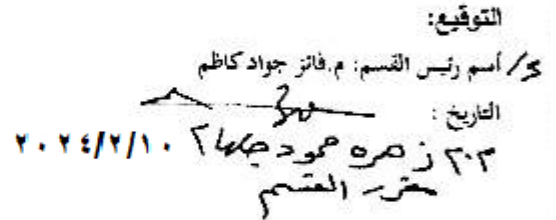 التوقيع:
ع/ أسم رئيس القسم: م.فائز جواد كاظم
التاريخ :
م.م زهره حمود ٢٠٢٤/٢/١٠
مقرر القسم